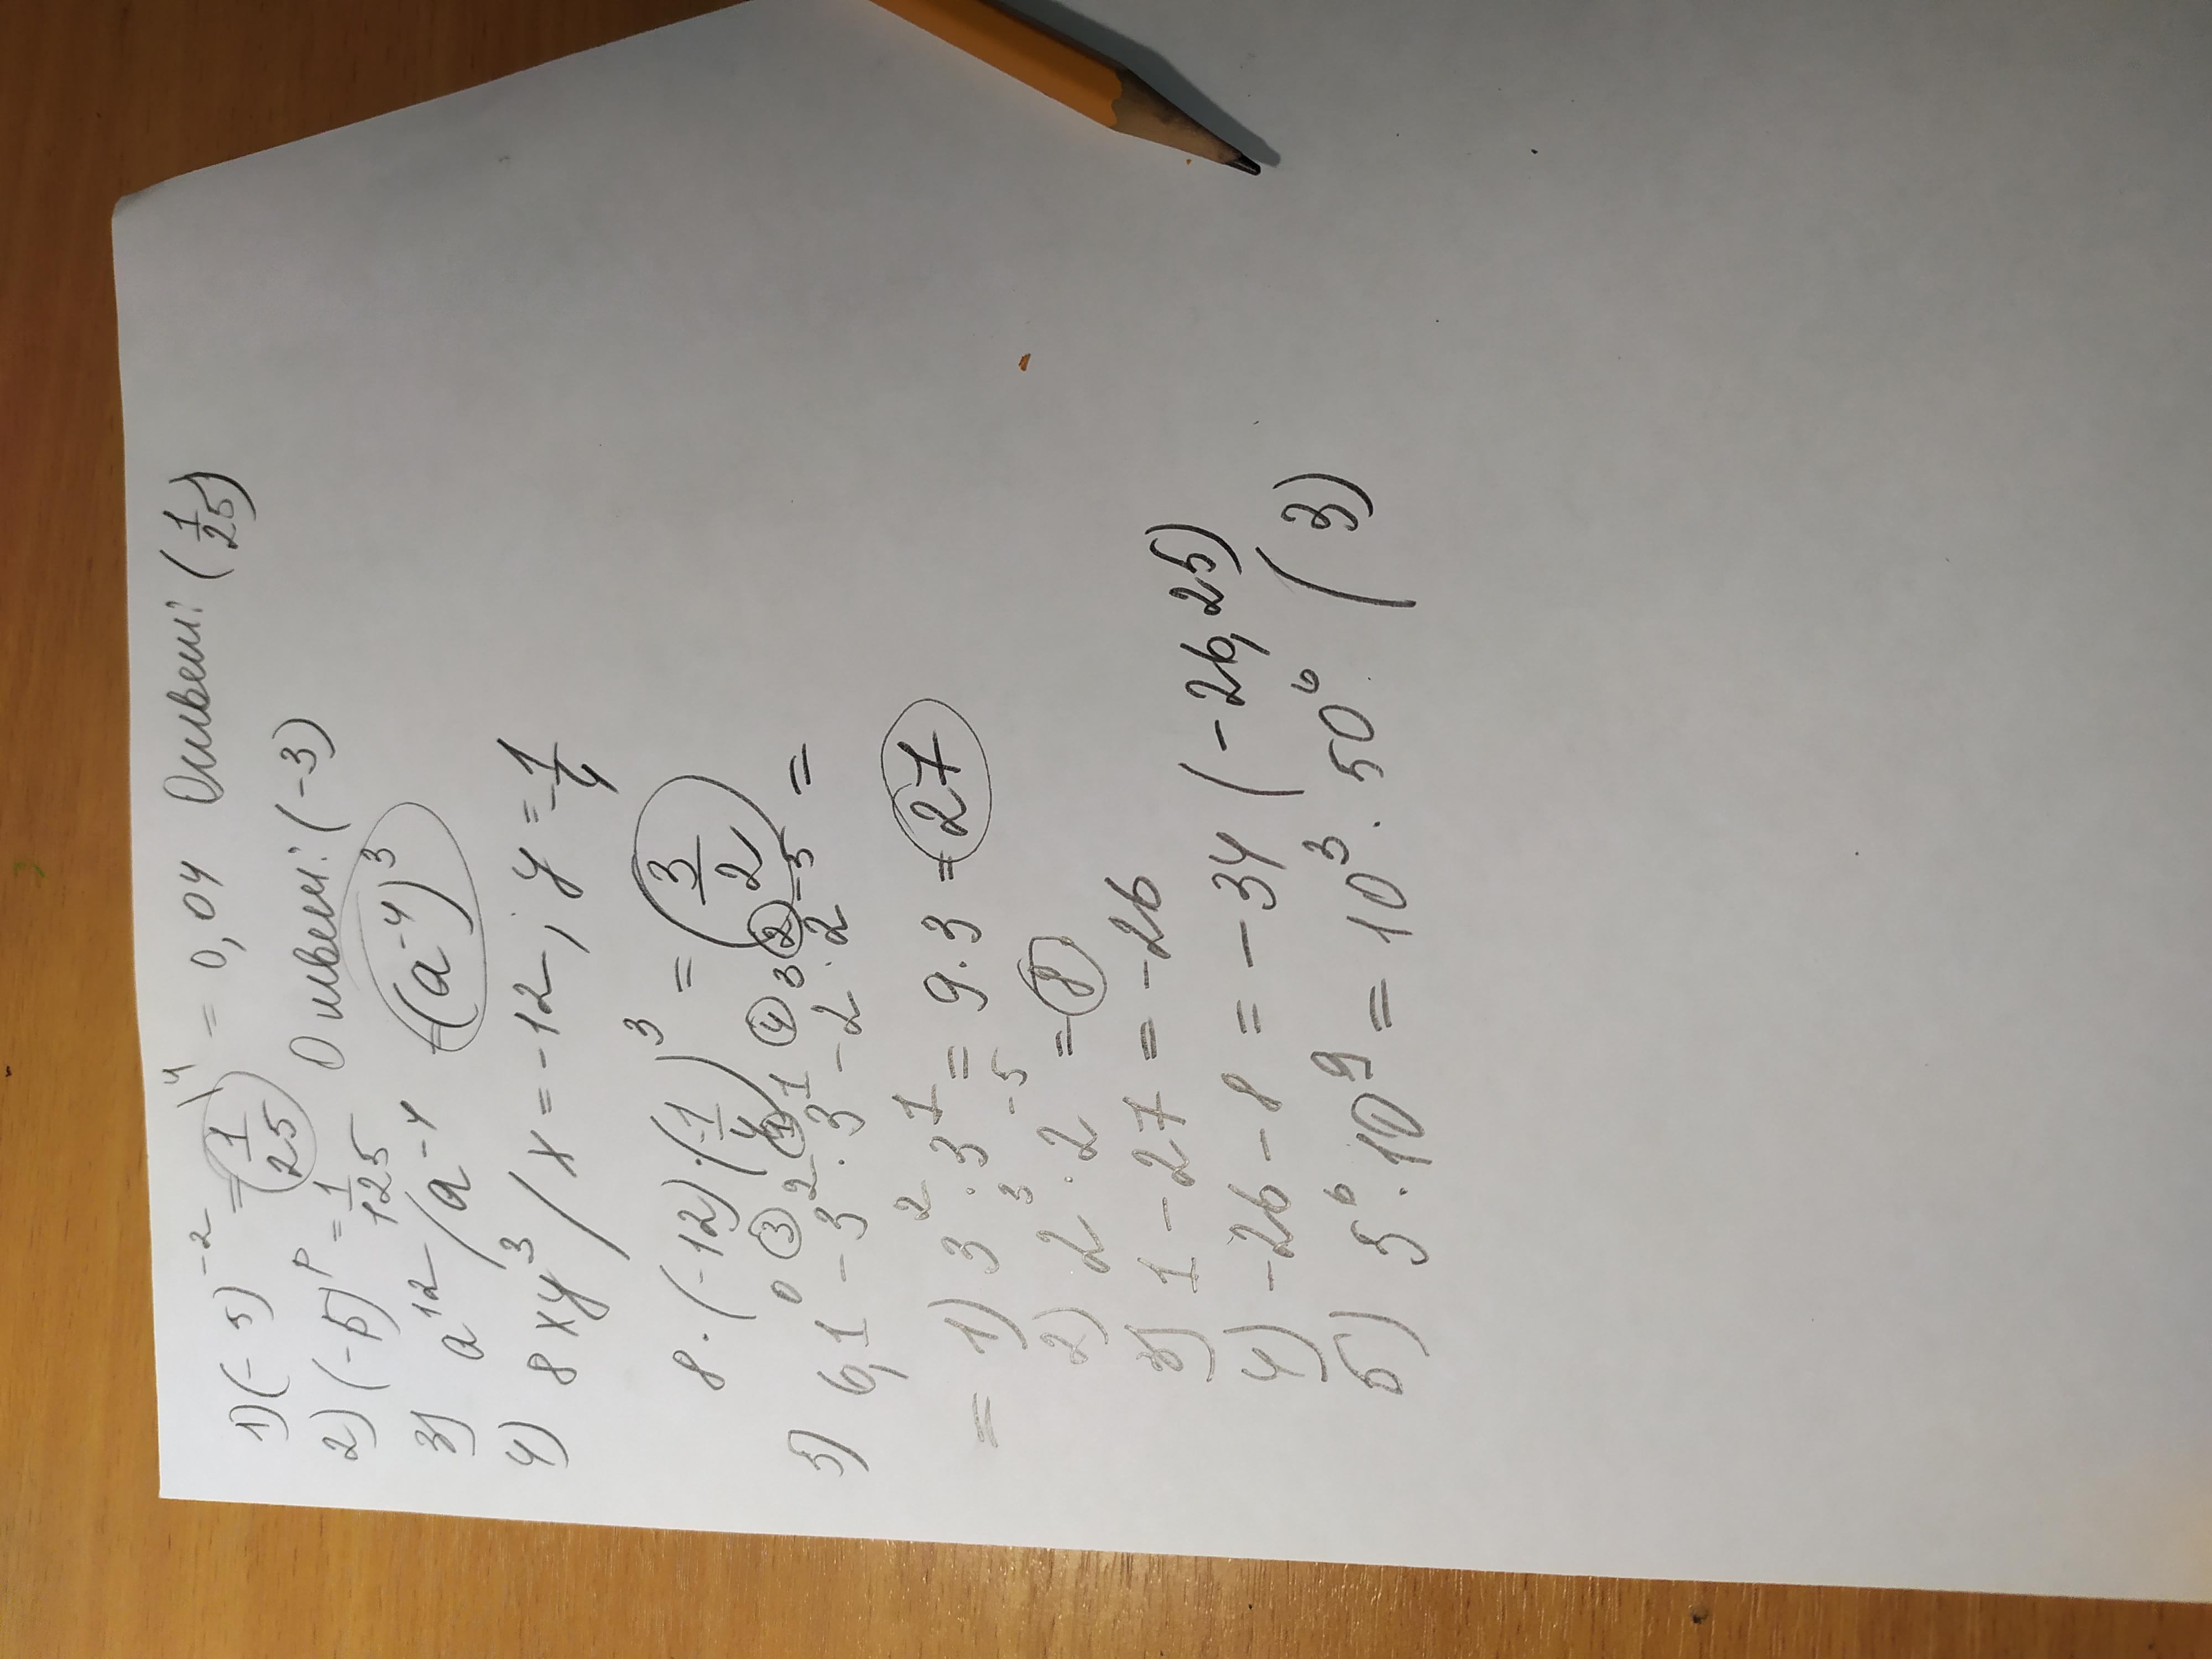 1) (-5)⁻² = (1/25)\⁴ = 0,04 Ответ: (1/25)
2) (-5)ᵖ = 1/125 Ответ: (-3)
3) a¹² / a⁻⁴ (a⁻⁴)³
4) 8xy³ / x = -12, y = -1/4
8·(-12)·(-1/4)³ = (3/2)
5) 6,1⁰ ③ - 3² ① · 3¹ ④ - 2³ ② · 2⁻⁵ =
= 1) 3² · 3¹ = 9 · 3 = 27
2) 2³ · 2⁻⁵ = 8
3) 1 - 27 = -26
4) -26 - 8 = -34 (-26,25)
6) 5⁶ · 10⁹ = 10³ · 50⁶ (3)